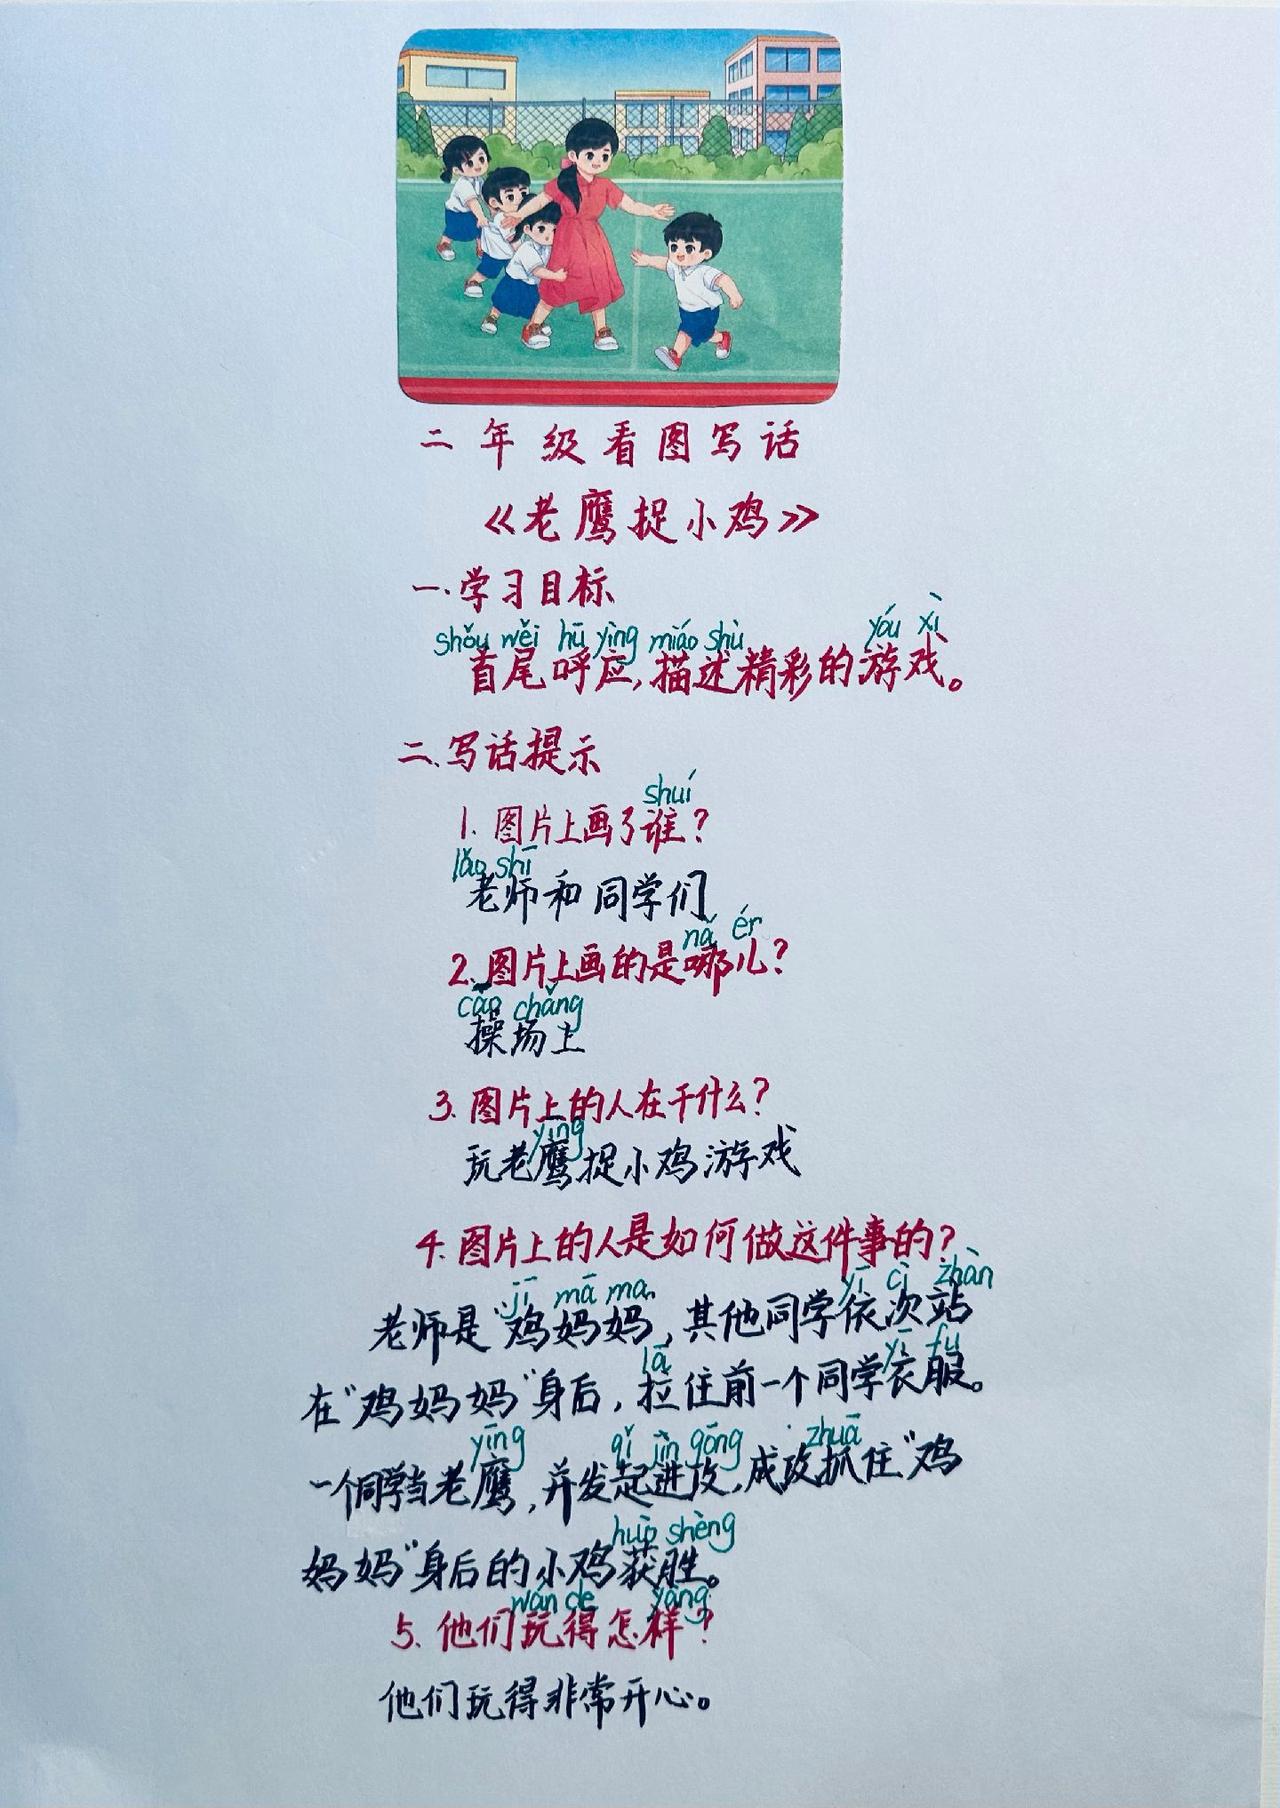 二年级看图写话
《老鹰捉小鸡》
一.学习目标
shǒu wěi hū yìng miáo shù yóu xì
首尾呼应,描述精彩的游戏。
二.写话提示
shuí
1.图片上画了谁?
lǎo shī
老师和同学们
nǎ ér
2.图片上画的是哪儿?
cāo chǎng
操场上
3.图片上的人在干什么?
yīng
玩老鹰捉小鸡游戏
4.图片上的人是如何做这件事的?
jī mā ma yī cì zhàn
老师是“鸡妈妈,其他同学依次站
lā yī fu
在“鸡妈妈”身后,拉住前一个同学衣服。
yīng qǐ jìn gōng zhuā
一个同学当老鹰,并发起进攻,成攻抓住“鸡
huò shèng
妈妈”身后的小鸡获胜。
wán de yàng
5.他们玩得怎样?
他们玩得非常开心。